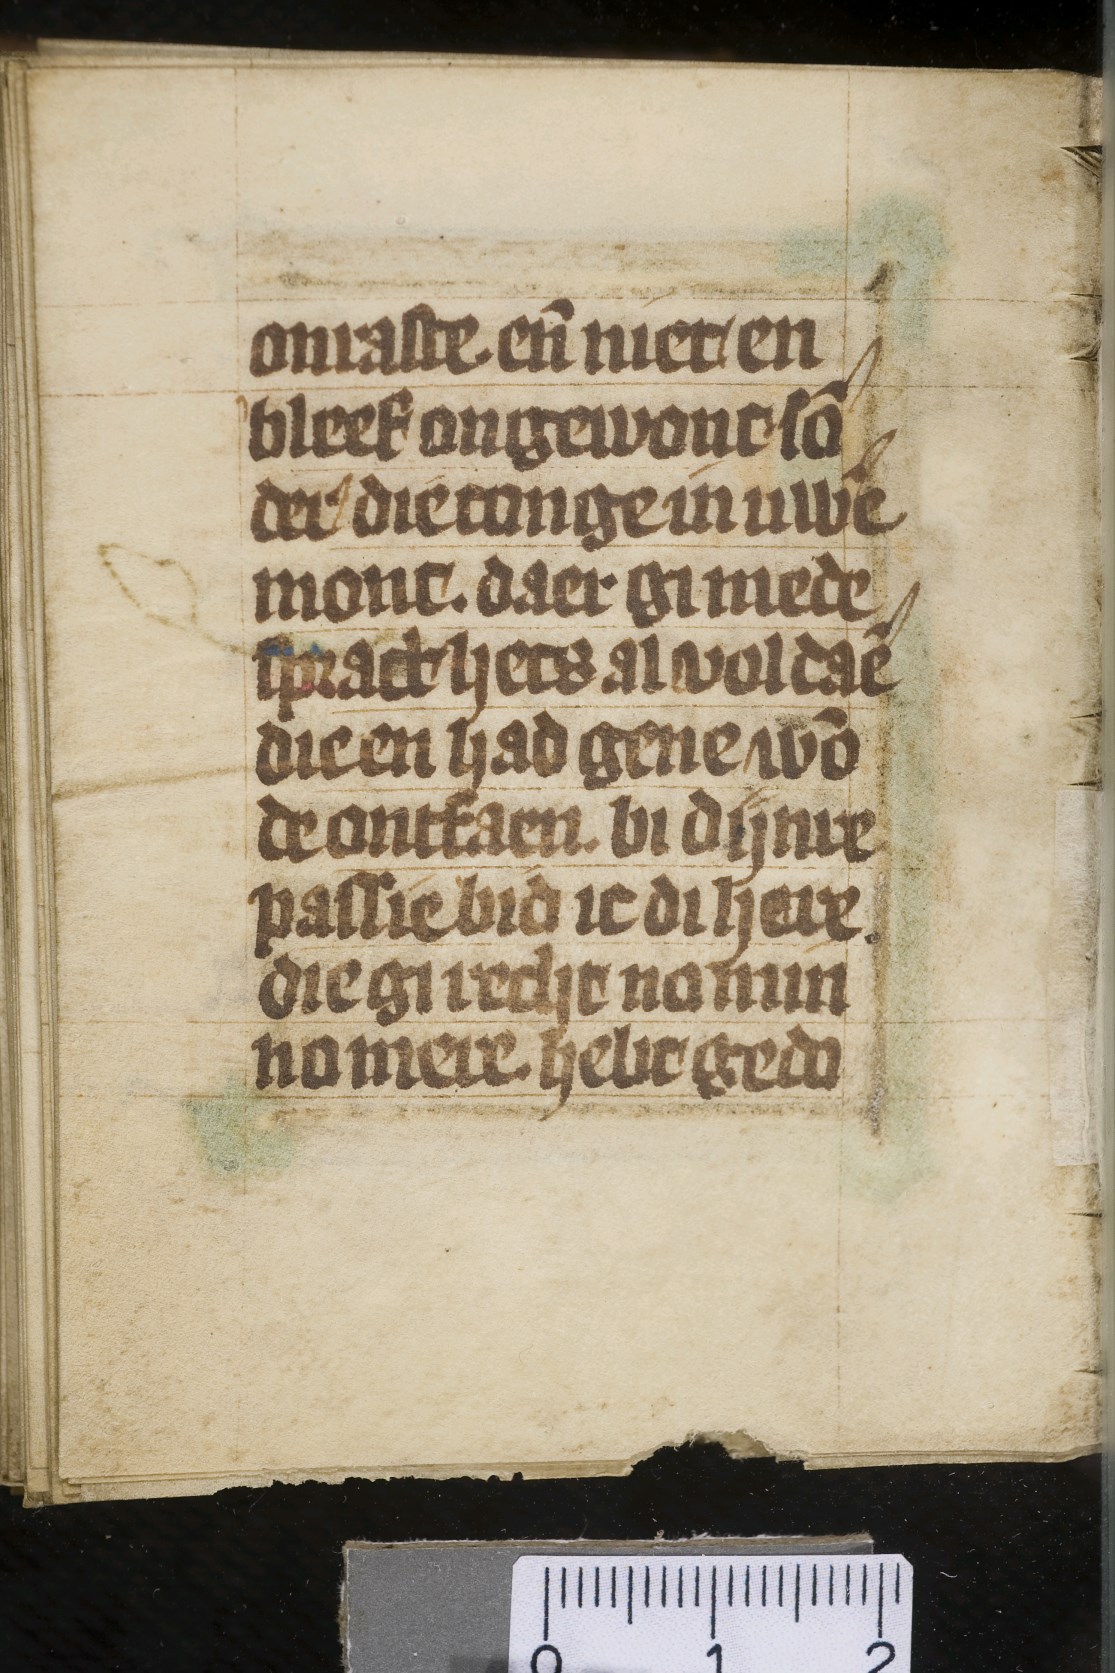 onraste. en̄ niet en
bleef ongewont son̄
der die tonge in uwē
mont. daer gi mede
spraect hets al voldaē
die en had gene wō
de ontfaen. bi dijnre
passie bid ic di here.
die gi recht no min
no mere. hebt gedo
0 1 2